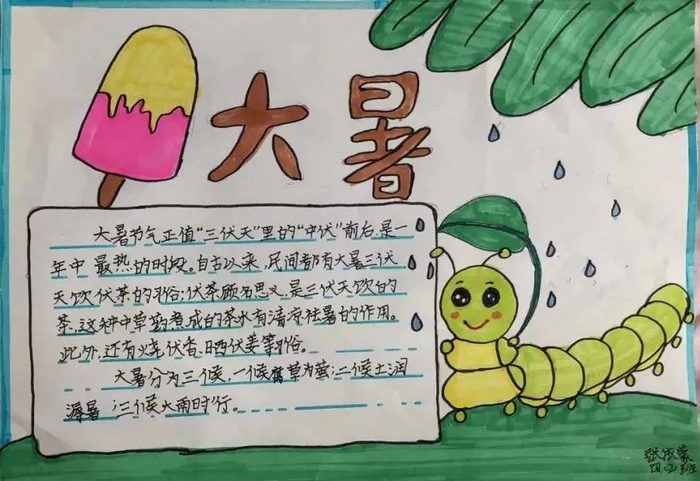 大暑
大暑节气正值“三伏天”里的“中伏”前后,是一
年中最热的时段。自古以来,民间都有大暑三伏
天饮伏茶的习俗;伏茶顾名思义,是三伏天饮的
茶,这种中草药煮成的茶水有清凉祛暑的作用。
此外,还有烧伏香、晒伏姜等习俗。
大暑分为三候,一候腐草为萤;二候土润
溽暑;三候大雨时行。
四(4)班